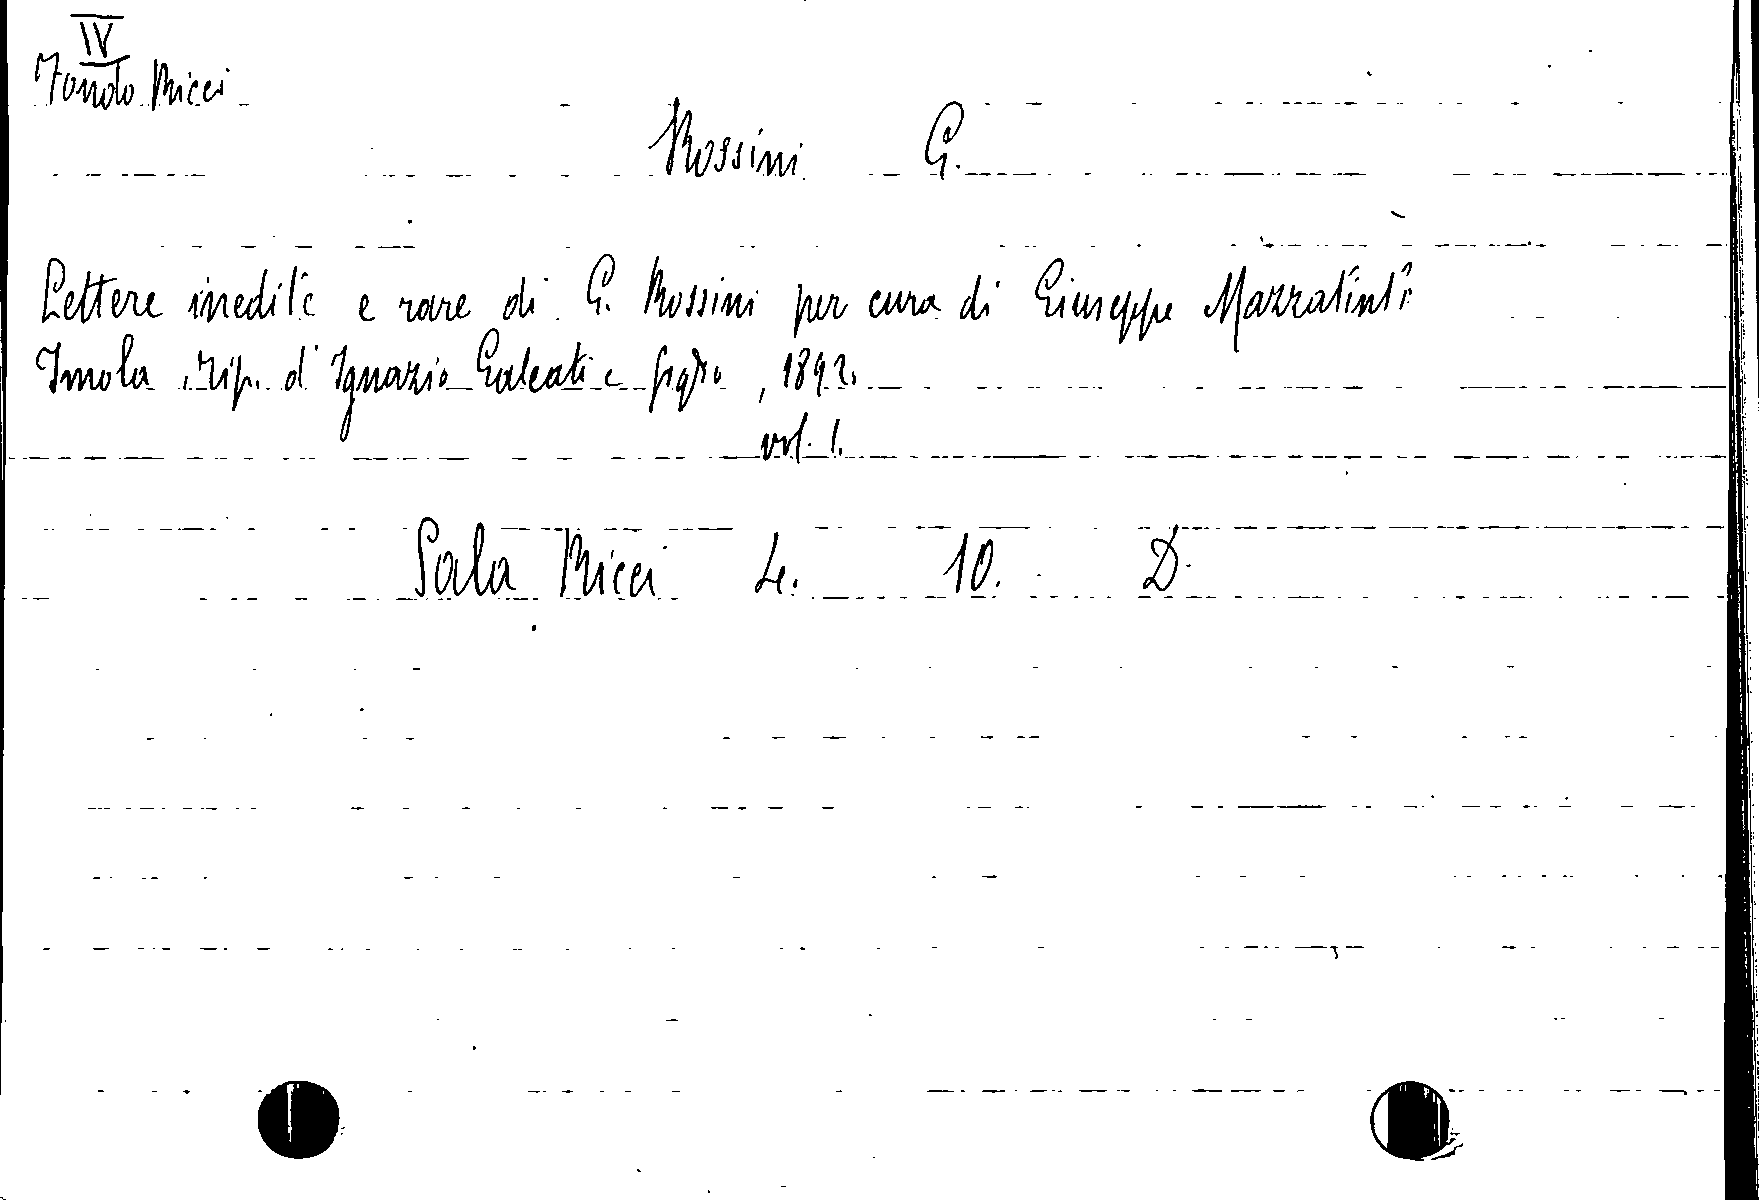 IV
Fondo Ricci
Rossini G.
Lettere inedite e rare di G. Rossini per cura di Giuseppe Mazzatinti
Imola, Tip. d'Ignazio Galeati e figlio, 1892.
vol. 1.
Sala Ricci 4. 10. D.